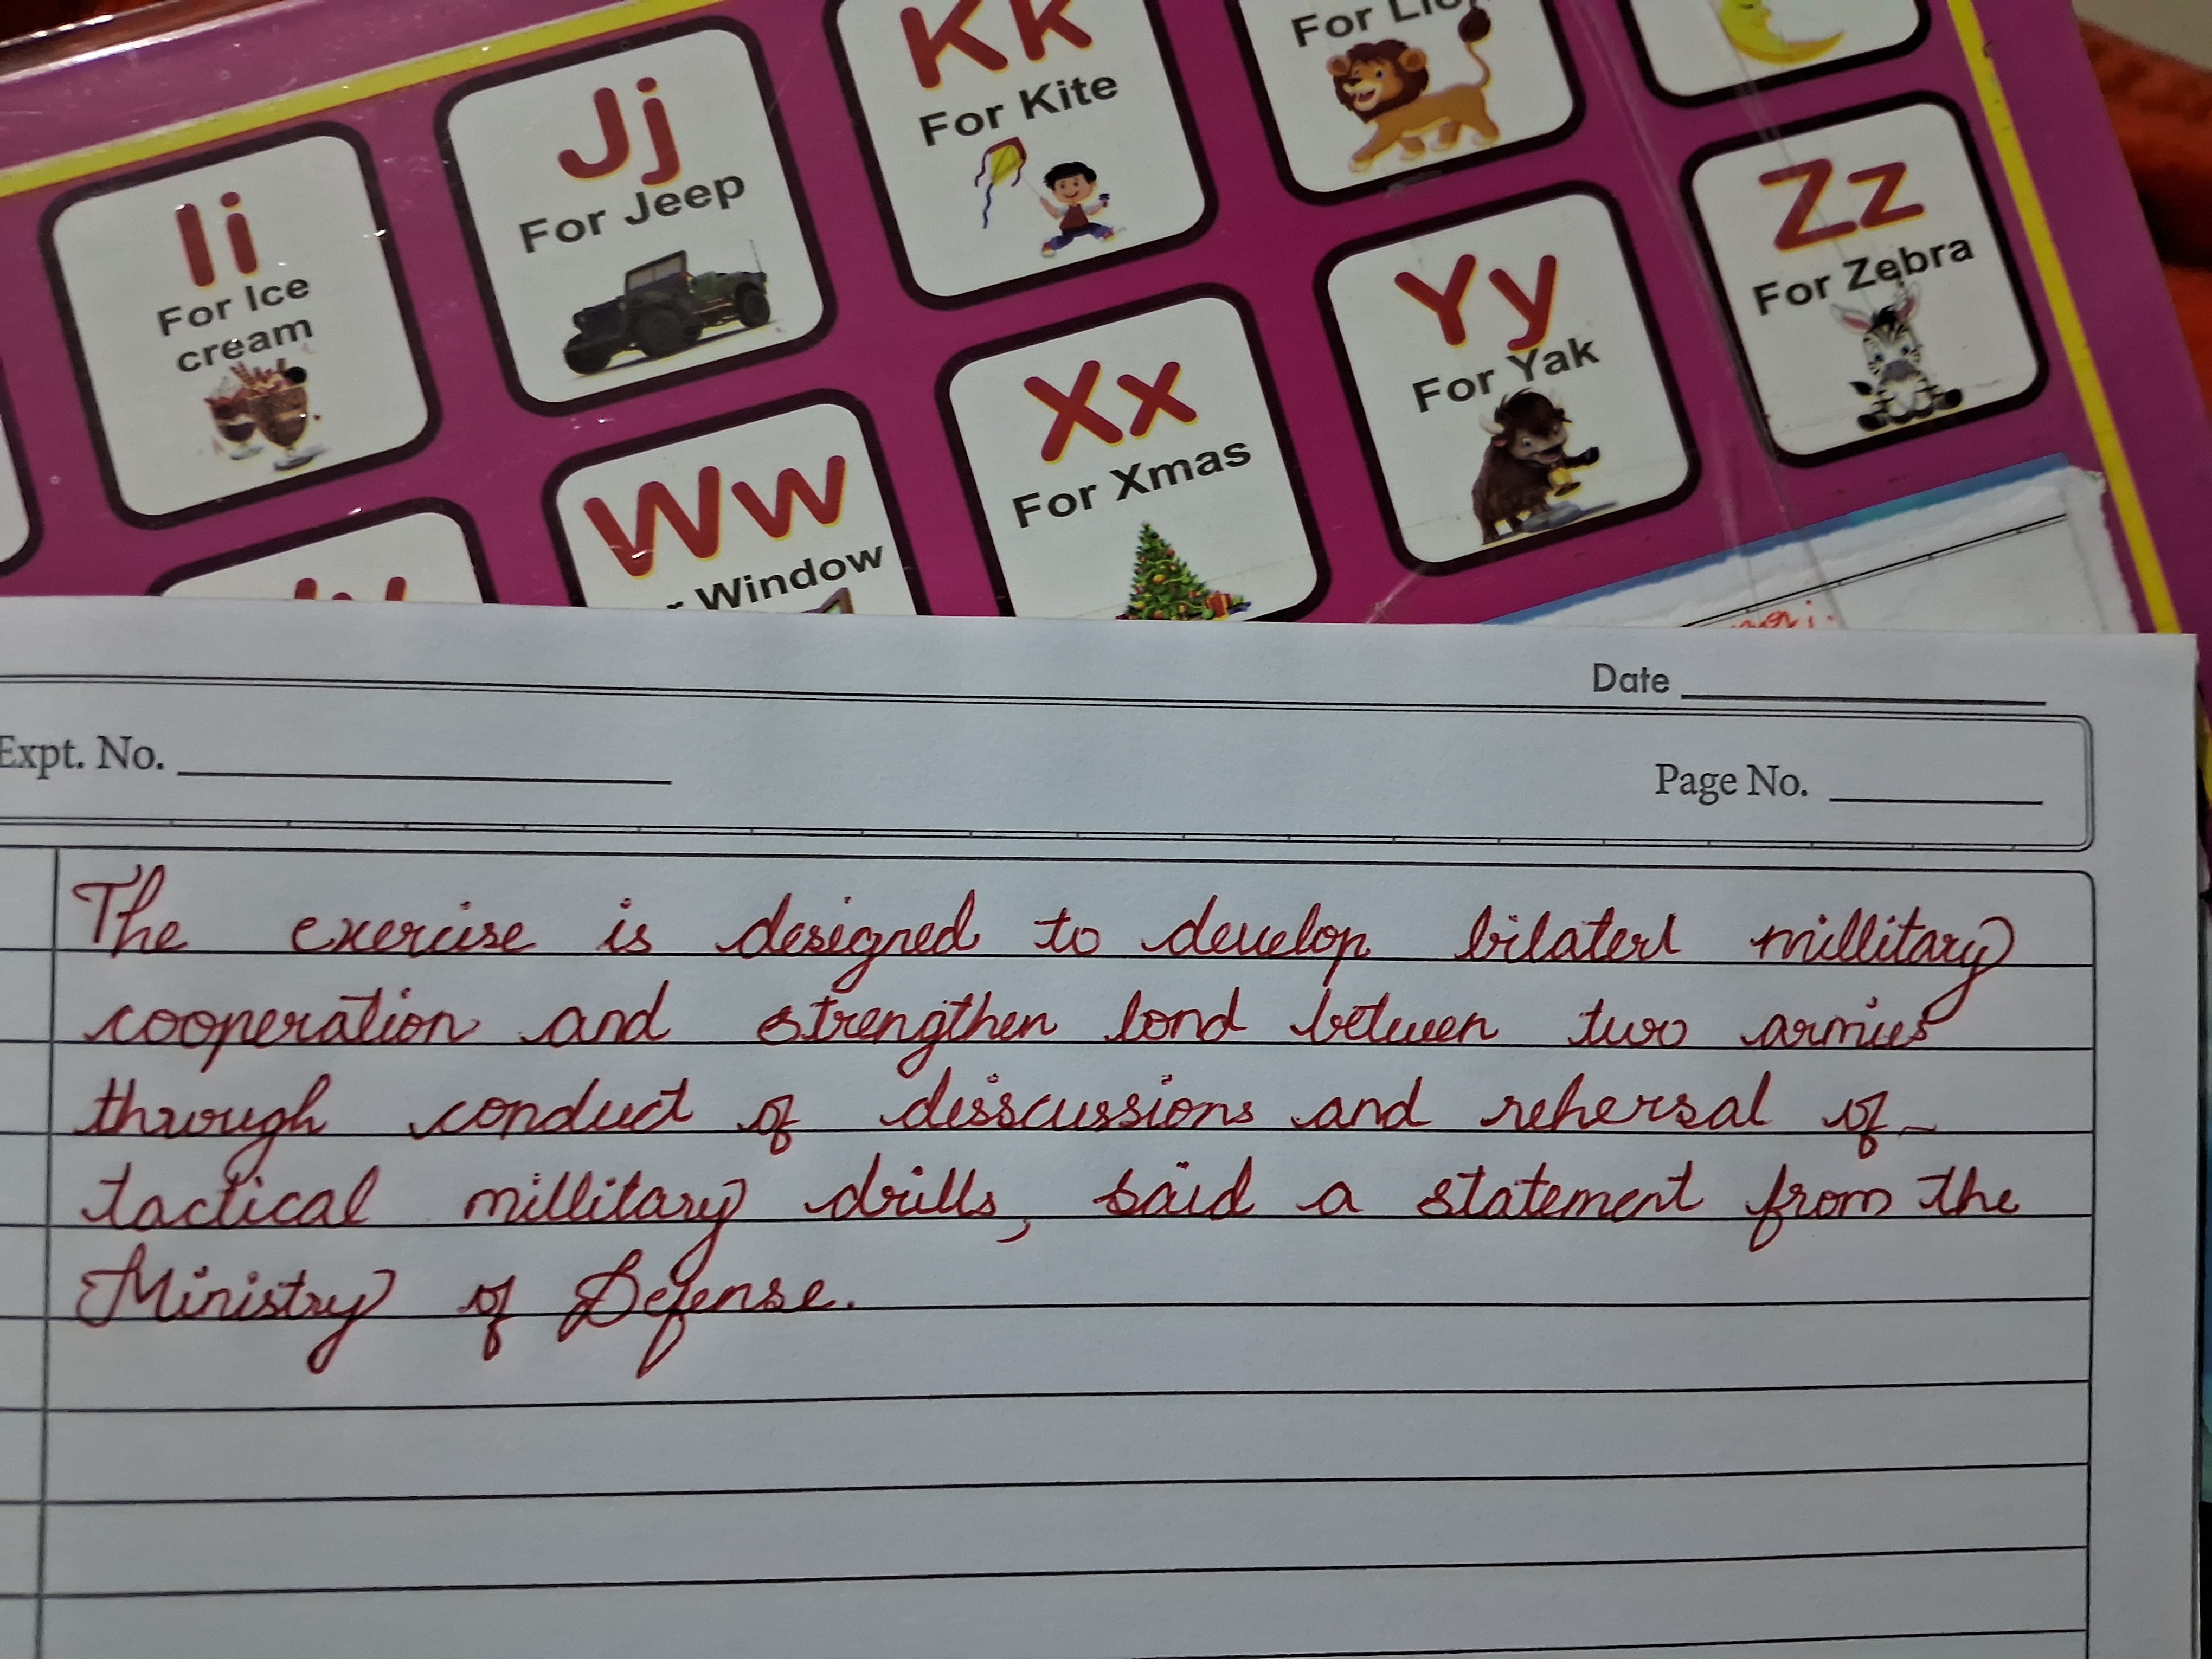 Kk
For Kite
For Lion
Jj
For Jeep
Ii
For Ice
cream
Zz
For Zebra
Yy
For Yak
Xx
For Xmas
Ww
Window
Date
Expt. No.
Page No.
The exercise is designed to develop bilaterl millitary
cooperation and strengthen bond between two armies
through conduct of disscussions and rehersal of
tactical millitary drills, said a statement from the
Ministry of Defense.